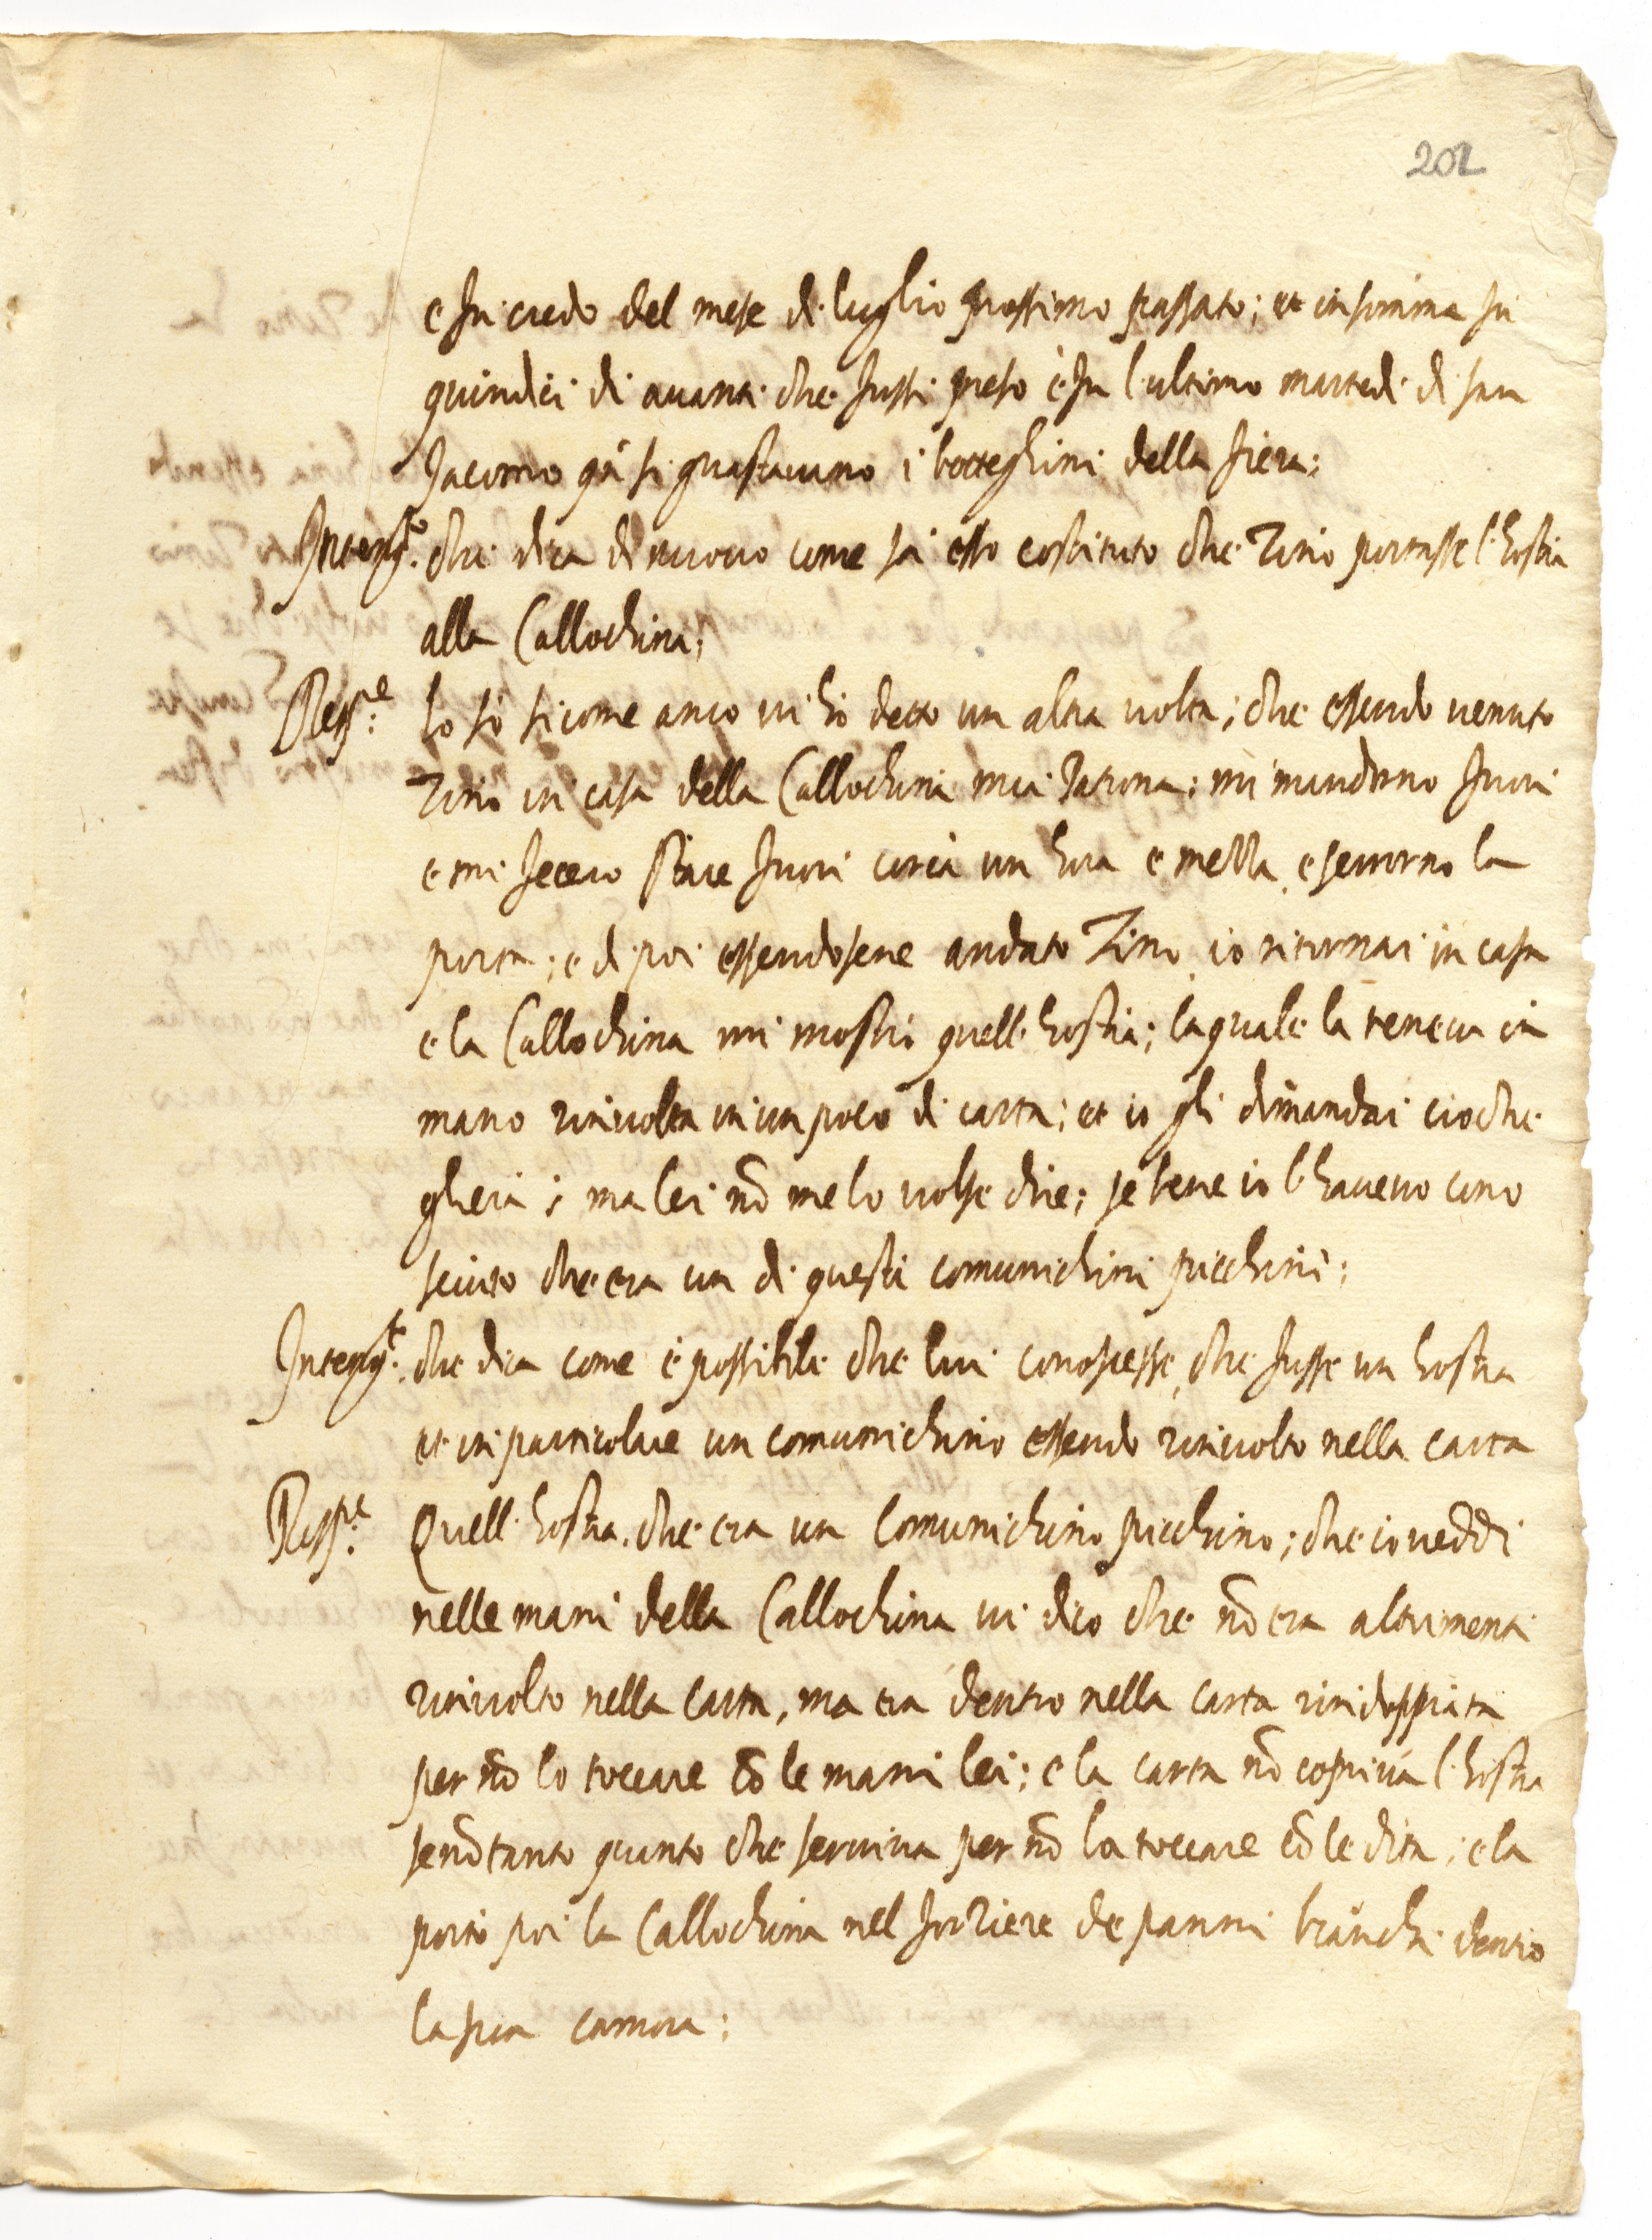 202
e fu credo del mese di luglio prossimo passato; et in somma fu
quindici di avanti che fussi preso e fu l'ultimo martedi di san
Jacomo qñ si guastavano i botteghini della fiera;
Interrog.to che dica di nuovo come sà esso costituto che Zino portasse l'hostia
alla Callochina;
Resp.e lo sò sicome anco vi hò detto un altra volta; che essendo venuto
Zino in casa della Callochina mia Patrona; mi mandorno fuori
e mi fecero stare fuori circa un hora e mezza, e serrorno la
porta; e di poi essendosene andato Zino, io ritornai in casa
e la Callochina mi mostrò quell'hostia; la quale la teneva in
mano rinvolta in un poco di carta; et io gli dimandai cioche
gl'era; ma lei nõ me lo volse dire; se bene io l'havevo cono
sciuto che era un di questi comunichini picchini;
Interrog.to che dica come è possibile che lui conoscesse, che fusse un hostia
et in particolare un comunichino essendo rinvolto nella carta
Resp.e Quell'hostia, che era un comunichino picchino; che io veddi
nelle mani della Callochina vi dico che nõ era altrimenti
rinvolto nella carta, ma era dentro nella carta rindoppiata
per nõ lo toccare cõ le mani lei; e la carta nõ copriva l'hostia
se nõ tanto quanto che serviva per nõ la toccare cõ le dita; e la
portò poi la Callochina nel forziere de panni bianchi dentro
la sua camora;